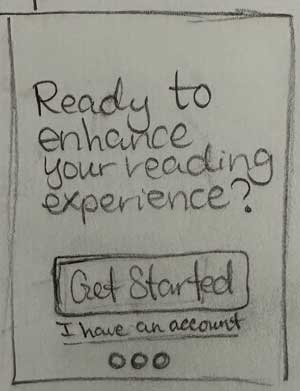 Ready to
enhance
your reading
experience?
Get Started
I have an account